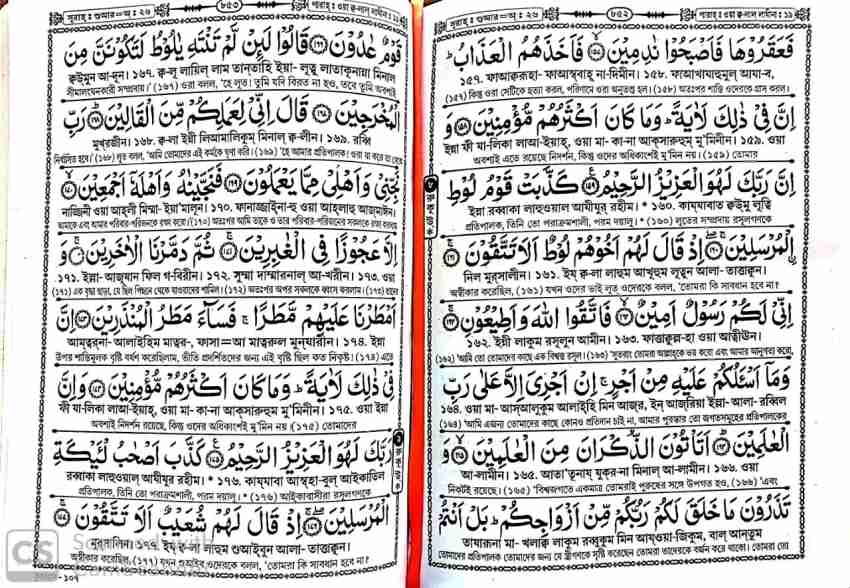 পারাহ্ : ওয়া ক্ব-লাল্ লাযীনা : ১১
৮৫২
সূরাহ্ : শুআর=আ : ২৬
فَعَقَرُوْهَا فَاَصْبَحُوْا نٰدِمِيْنَ ۝١٥٧ فَاَخَذَهُمُ الْعَذَابُ ؕ
১৫৭. ফাআক্বরূহা- ফাআস্ববাহূ না-দিমীন। ১৫৮. ফাআখাযাহুমুল্ আযা-ব,
(১৫৭) কিন্তু ওরা সেটিকে হত্যা করল, পরিণামে ওরা অনুতপ্ত হল। (১৫৮) অতঃপর শাস্তি ওদেরকে গ্রাস করল।
اِنَّ فِىْ ذٰلِكَ لَاٰيَةً ؕ وَمَا كَانَ اَكْثَرُهُمْ مُّؤْمِنِيْنَ ۝١٥٨ وَ
ইন্না ফী যা-লিকা লাআ-ইয়াহ্, ওয়া মা- কা-না আক্সারুহুম্ মু'মিনীন। ১৫৯. ওয়া
অবশ্যই এতে রয়েছে নিদর্শন, কিন্তু ওদের অধিকাংশই মু'মিন নয়। (১৫৯) তোমার
اِنَّ رَبَّكَ لَهُوَ الْعَزِيْزُ الرَّحِيْمُ ۝١٥٩ كَذَّبَتْ قَوْمُ لُوْطِ
ইন্না রব্বাকা লাহুওয়াল আযীযুর রহীম। * ১৬০. কায্যাবাত ক্বওমু লূত্বি
প্রতিপালক, তিনি তো পরাক্রমশালী, পরম দয়ালু। * (১৬০) লূতের সম্প্রদায় রসূলগণকে
ۨالْمُرْسَلِيْنَ ۝١٦٠ اِذْ قَالَ لَهُمْ اَخُوْهُمْ لُوْطٌ اَلَا تَتَّقُوْنَ ۝١٦١
নিল মুর্সালীন। ১৬১. ইয্ ক্ব-লা লাহুম আখূহুম লূতুন আলা- তাত্তাক্বূন।
অস্বীকার করেছিল, (১৬১) যখন ওদের ভাই লূত ওদেরকে বলল, 'তোমরা কি সাবধান হবে না?
اِنِّىْ لَكُمْ رَسُوْلٌ اَمِيْنٌ ۝١٦٢ فَاتَّقُوا اللّٰهَ وَاَطِيْعُوْنِ ۝١٦٣
১৬২. ইন্নী লাকুম রসূলুন আমীন। ১৬৩. ফাত্তাক্বুল্লা-হা ওয়া আত্বীঊন।
(১৬২) 'আমি তো তোমাদের কাছে এক বিশ্বস্ত রসূল। (১৬৩) 'সুতরাং তোমরা আল্লাহকে ভয় করো এবং আমার আনুগত্য করো,
وَمَاۤ اَسْـَٔلُكُمْ عَلَيْهِ مِنْ اَجْرٍ ۚ اِنْ اَجْرِىَ اِلَّا عَلٰى رَبِّ
১৬৪. ওয়া মা- আস্আলুকুম আলাইহি মিন আজ্র, ইন্ আজ্রিয়া ইল্লা- আলা- রব্বিল
(১৬৪) 'আমি এজন্য তোমাদের কাছে কোনো প্রতিদান চাই না, আমার পুরস্কার তো জগতসমূহের প্রতিপালকের
الْعٰلَمِيْنَ ۝١٦٤ اَتَاْتُوْنَ الذُّكْرَانَ مِنَ الْعٰلَمِيْنَ ۝١٦٥ وَ
আ-লামীন। ১৬৫. আতা'তূনায্ যুক্র-না মিনাল আ-লামীন। ১৬৬. ওয়া
নিকটই রয়েছে। (১৬৫) 'বিশ্বজগতে একমাত্র তোমরাই পুরুষের সঙ্গে উপগত হও, (১৬৬) 'এবং
تَذَرُوْنَ مَا خَلَقَ لَكُمْ رَبُّكُمْ مِّنْ اَزْوَاجِكُمْ ؕ بَلْ اَنْتُمْ
তাযারূনা মা- খলাক্ব লাকুম রব্বুকুম মিন আয্ওয়া-জিকুম, বাল্ আন্তুম
তোমাদের প্রতিপালক তোমাদের জন্য যে স্ত্রীগণকে সৃষ্টি করেছেন তোমরা তাদেরকে বর্জন করে থাকো। তোমরা তো
পারাহ্ : ওয়া ক্ব-লাল্ লাযীনা : ১১
৮৫৩
সূরাহ্ : শুআর=আ : ২৬
قَوْمٌ عٰدُوْنَ ۝١٦٦ قَالُوْا لَئِنْ لَّمْ تَنْتَهِ يٰلُوْطُ لَتَكُوْنَنَّ مِنَ
ক্বওমুন আ-দূন। ১৬৭. ক্ব-লূ লায়িল্ লাম তান্তাহি ইয়া- লূত্বু লাতাকূনান্না মিনাল
সীমালংঘনকারী সম্প্রদায়।' (১৬৭) ওরা বলল, 'হে লূত! তুমি যদি বিরত না হও, তবে তুমি অবশ্যই
الْمُخْرَجِيْنَ ۝١٦٧ قَالَ اِنِّىْ لِعَمَلِكُمْ مِّنَ الْقَالِيْنَ ۝١٦٨ رَبِّ
মুখ্রজীন। ১৬৮. ক্ব-লা ইন্নী লিআমালিকুম্ মিনাল্ ক্ব-লীন। ১৬৯. রব্বি
নির্বাসিত হবে।' (১৬৮) লূত বলল, 'আমি তোমাদের এই কর্মকে ঘৃণা করি। (১৬৯) 'হে আমার প্রতিপালক! ওরা যা করে তা থেকে
نَجِّنِىْ وَاَهْلِىْ مِمَّا يَعْمَلُوْنَ ۝١٦٩ فَنَجَّيْنٰهُ وَاَهْلَهٗۤ اَجْمَعِيْنَ ۝١٧٠
নাজ্জিনী ওয়া আহ্লী মিম্মা- ইয়া'মালূন। ১৭০. ফানাজ্জাইনা-হু ওয়া আহ্লাহূ আজ্মাঈন।
আমাকে এবং আমার পরিবার-পরিজনকে রক্ষা করো।' (১৭০) অতঃপর আমি তাকে ও তার পরিবার-পরিজনের সকলকে রক্ষা করলাম
اِلَّا عَجُوْزًا فِى الْغٰبِرِيْنَ ۝١٧١ ثُمَّ دَمَّرْنَا الْاٰخَرِيْنَ ۝١٧٢ وَ
১৭১. ইল্লা- আজূযান ফিল গ-বিরীন। ১৭২. সুম্মা দাম্মারনাল্ আ-খরীন। ১৭৩. ওয়া
(১৭১) এক বৃদ্ধা ছাড়া, যে ছিল পিছনে থেকে যাওয়াদের শামিল। (১৭২) অতঃপর অপর সকলকে ধ্বংস করলাম। (১৭৩)
اَمْطَرْنَا عَلَيْهِمْ مَّطَرًا ۚ فَسَآءَ مَطَرُ الْمُنْذَرِيْنَ ۝١٧٣ اِنَّ
আম্ত্বরনা- আলাইহিম মাত্বর-, ফাসা=আ মাত্বরুল মুন্যারীন। ১৭৪. ইন্না
উপর শাস্তিমূলক বৃষ্টি বর্ষণ করেছিলাম, ভীতি প্রদর্শিতদের জন্য এই বৃষ্টি ছিল কত নিকৃষ্ট! (১৭৪) এতে
فِىْ ذٰلِكَ لَاٰيَةً ؕ وَمَا كَانَ اَكْثَرُهُمْ مُّؤْمِنِيْنَ ۝١٧٤ وَاِنَّ
ফী যা-লিকা লাআ-ইয়াহ্, ওয়া মা- কা-না আক্সারুহুম মু'মিনীন। ১৭৫. ওয়া ইন্না
অবশ্যই নিদর্শন রয়েছে, কিন্তু ওদের অধিকাংশই মু'মিন নয় (১৭৫) তোমাদের
رَبَّكَ لَهُوَ الْعَزِيْزُ الرَّحِيْمُ ۝١٧٥ كَذَّبَ اَصْحٰبُ لْئَيْكَةِ
রব্বাকা লাহুওয়াল আযীযুর রহীম। * ১৭৬. কায্যাবা আস্বহা-বুল্ আইকাতিল
প্রতিপালক, তিনি তো পরাক্রমশালী, পরম দয়ালু। * (১৭৬) আইকাবাসীরা রসূলগণকে
الْمُرْسَلِيْنَ ۝١٧٦ اِذْ قَالَ لَهُمْ شُعَيْبٌ اَلَا تَتَّقُوْنَ ۝١٧٧
মুরসালীন। ১৭৭. ইয্ ক্ব-লা লাহুম শুআইবুন আলা- তাত্তাক্বূন।
অস্বীকার করেছিল, (১৭৭) যখন শুআইব ওদেরকে বলল, 'তোমরা কি সাবধান হবে না?
CS